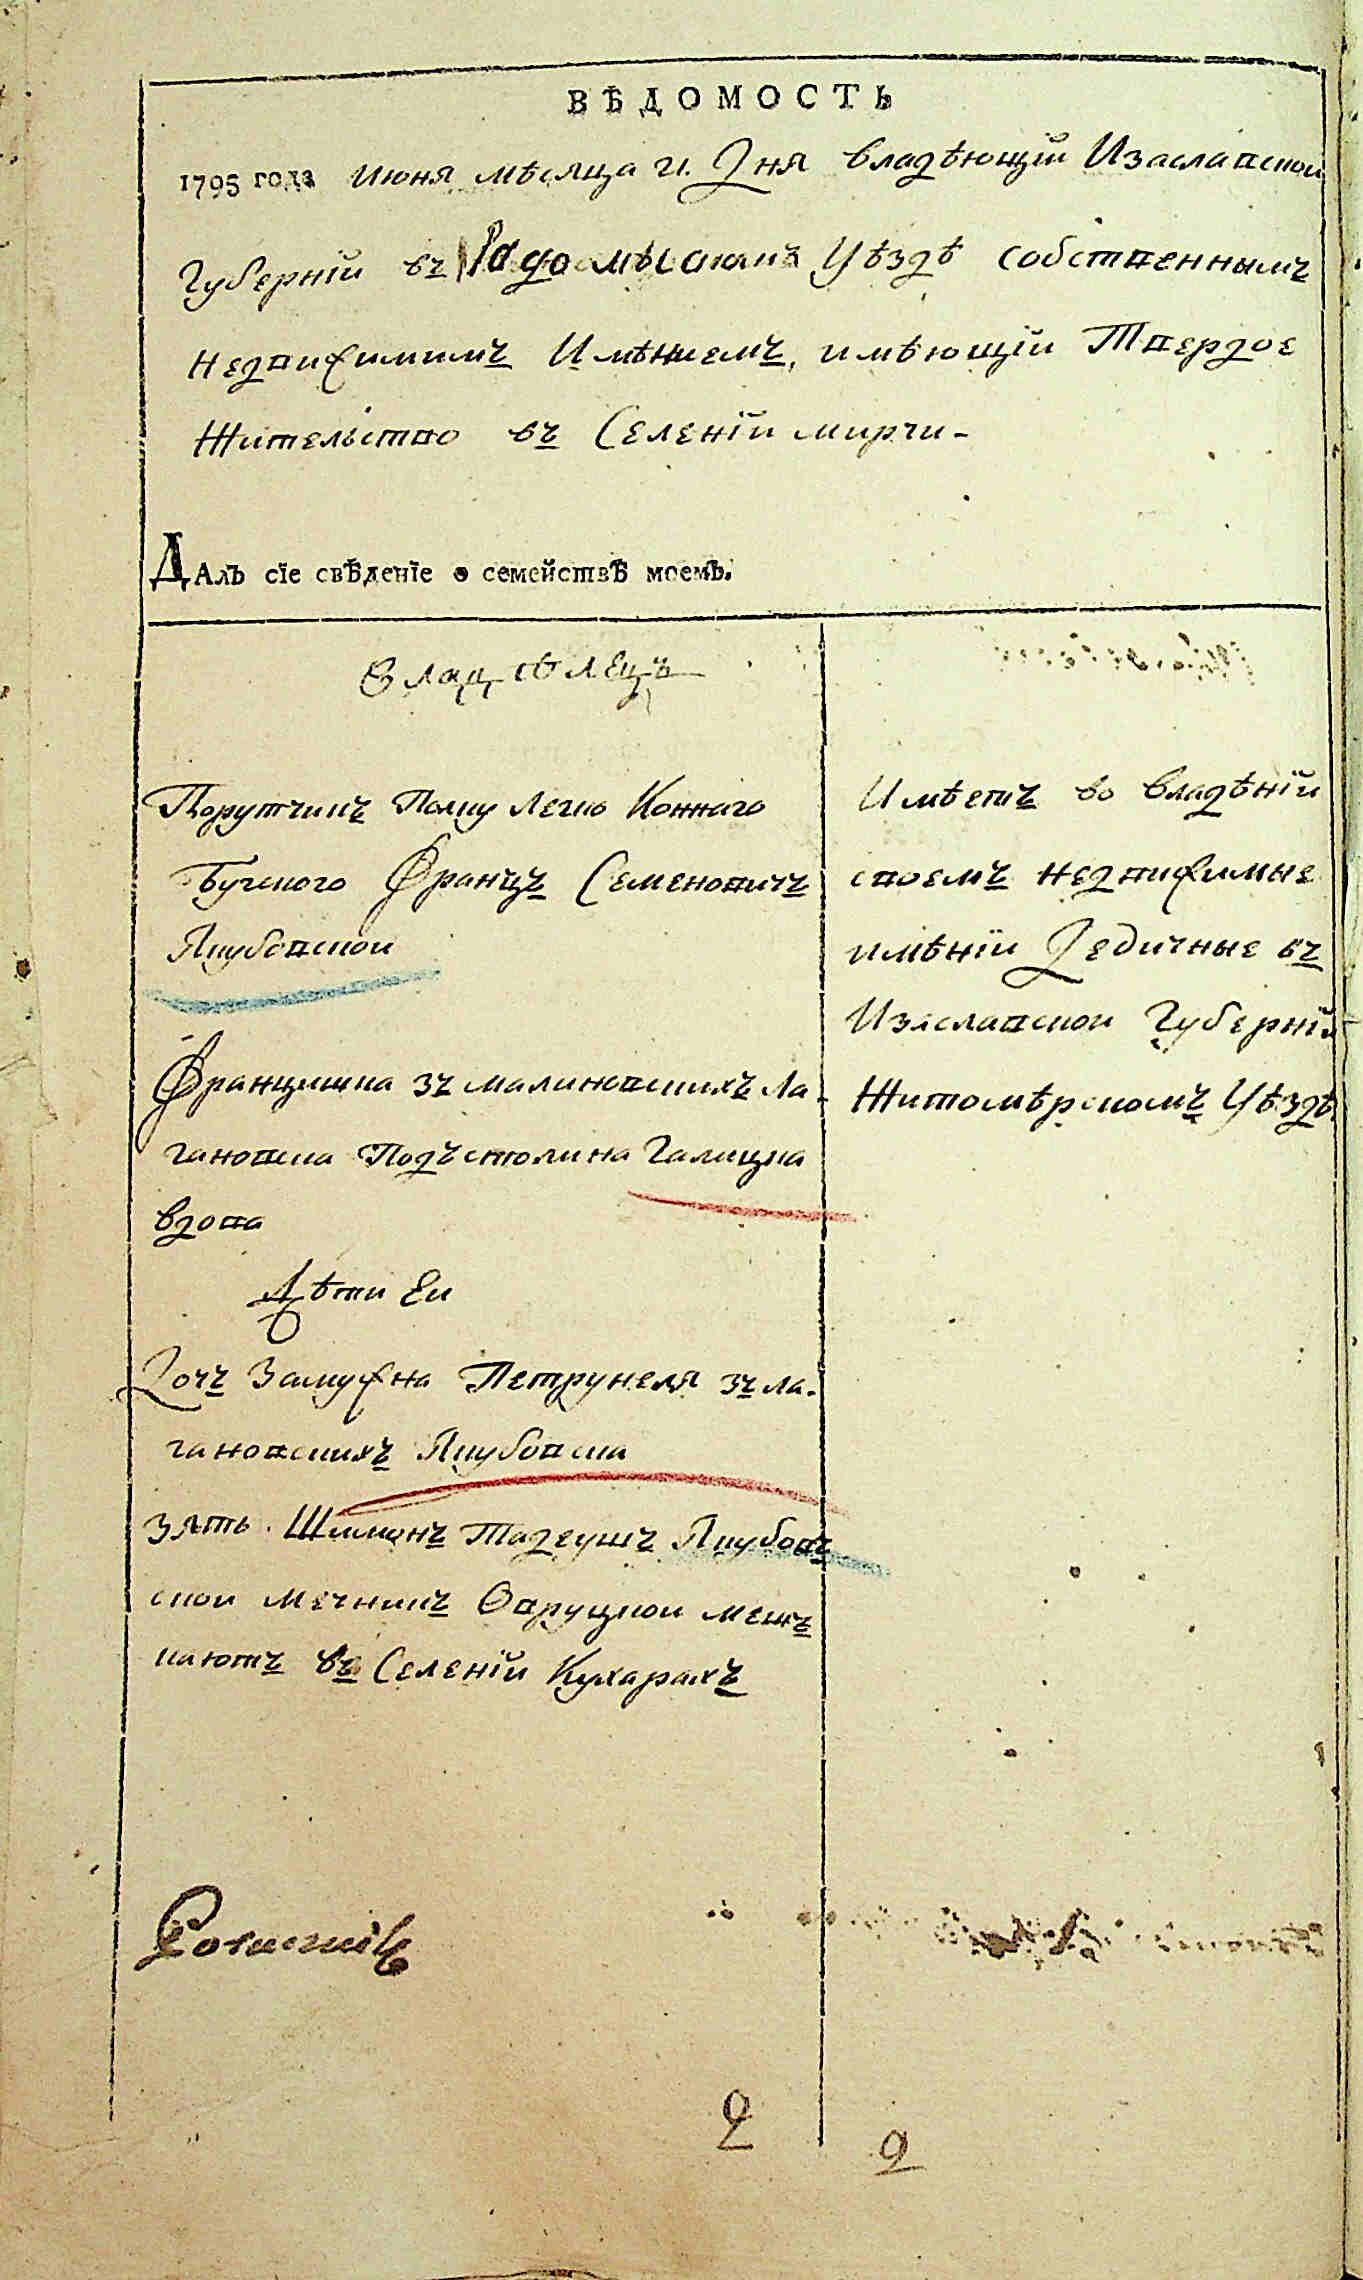 ВѢДОМОСТЬ
1795 года Июня мѣсяца 21. Дня владѣющій Изаславской
Губерніи въ Радомысломъ Уѣздѣ собственнымъ
недвижимимъ Имѣниемъ, имѣющій Твердое
Жительство въ Селеніи мирчи-
ДАлЪ сіе свѣденіе о семействѣ моемЪ.
Владѣлецъ
Порутчикъ Полку Легко Коннаго
Бугского Францъ Семеновичъ
Якубовской
Францишка зъ малиновскихъ ла-
гановска Подъстолина Галицка
вдова
Дѣти Еи
Дочъ Замужна Петрунеля зъ ла-
гановскихъ Якубовска
зять. Шимонъ Тадеушъ Якубовъ
ской мечникъ Овруцкои мешъ
каютъ въ Селеніи Кухарахъ
Имѣетъ во владѣніи
своемъ недвижимые
имѣніи Дедичные въ
Изаславской Губерніи
Житомѣрскомъ Уѣздѣ.
2
2